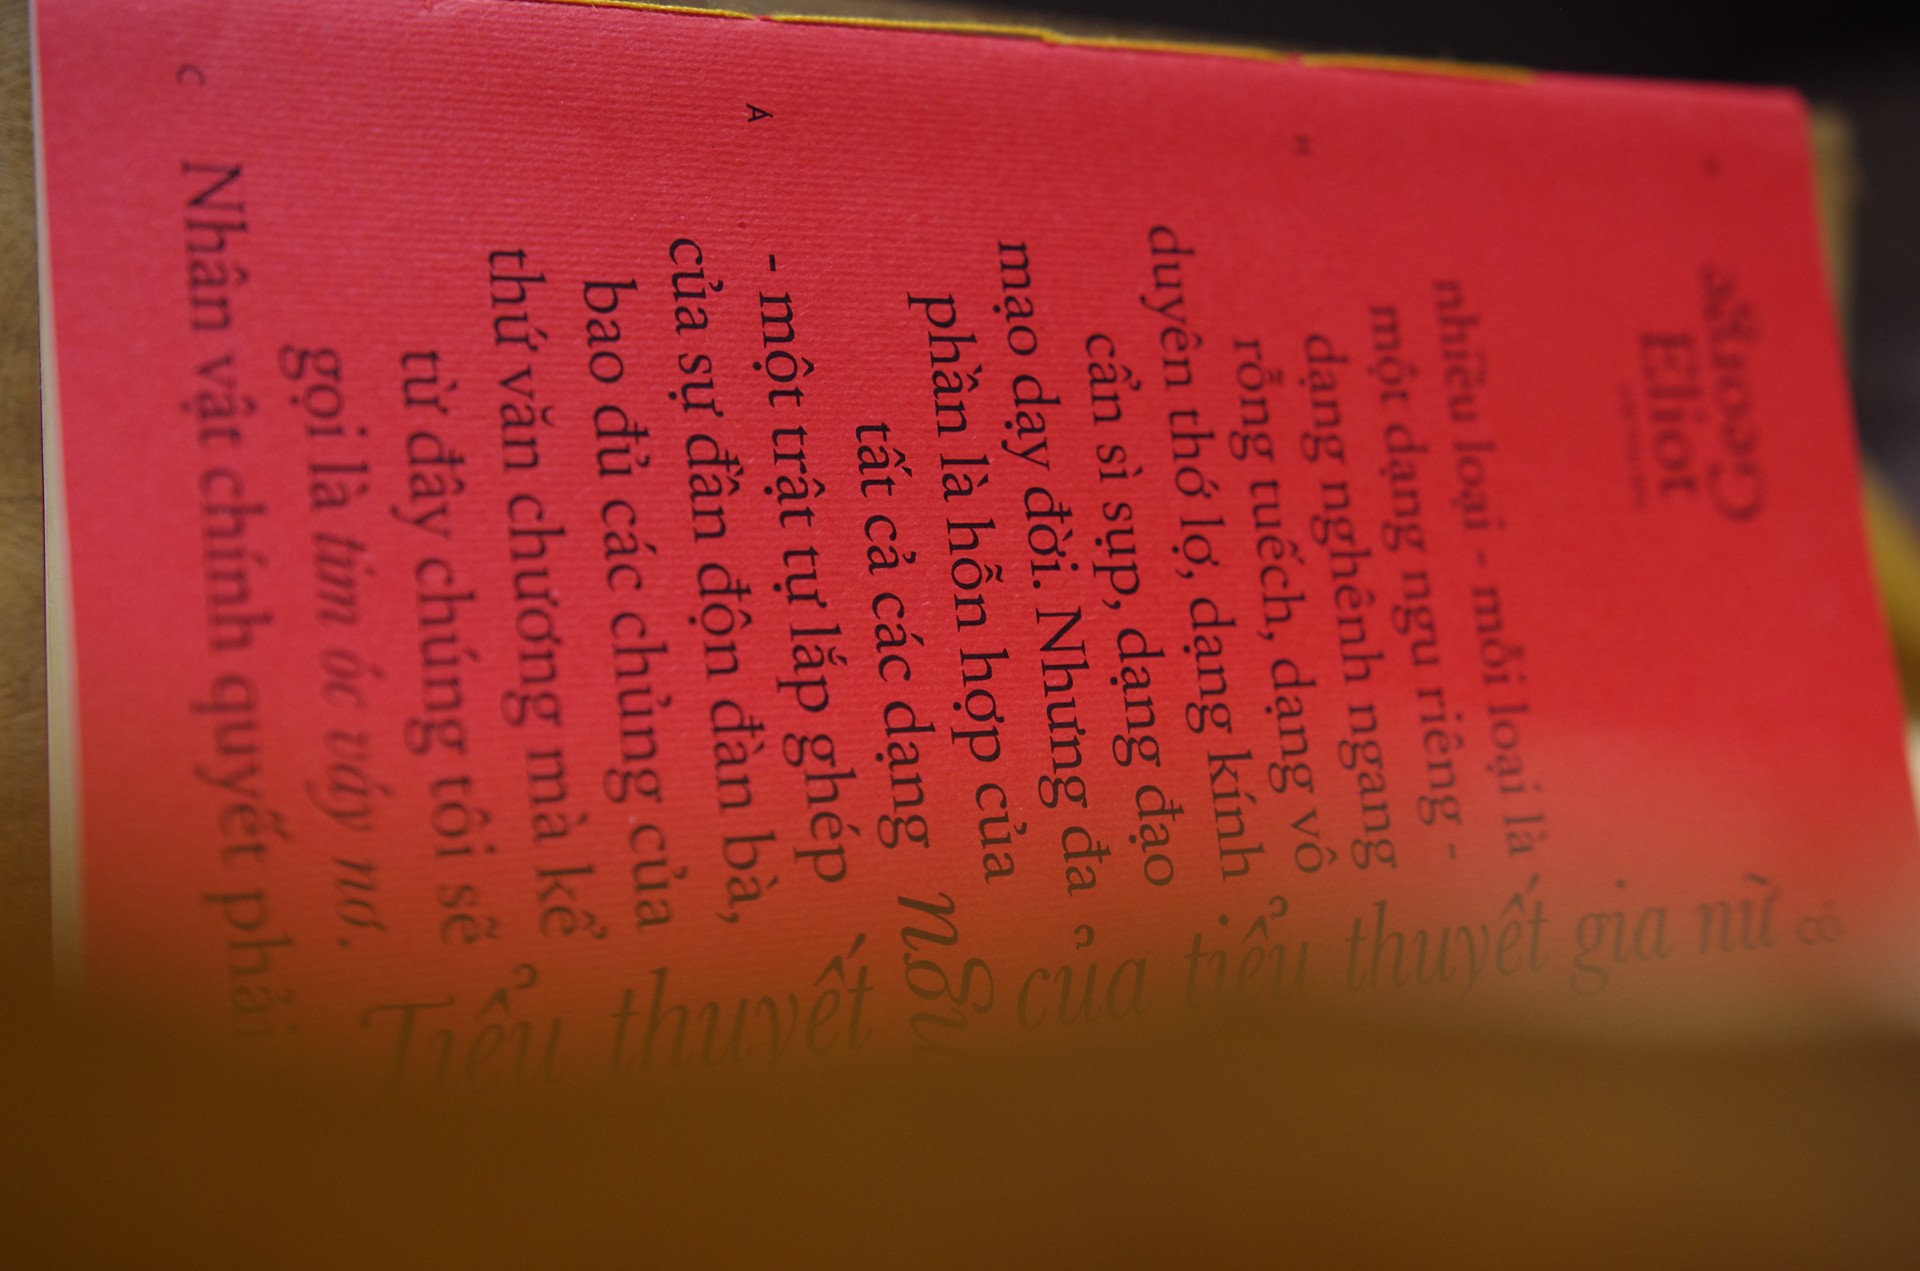 George
Eliot
nhiều loại - mỗi loại là
một dạng ngu riêng -
dạng nghênh ngang
rỗng tuếch, dạng vô
duyên thớ lợ, dạng kính
cẩn sì sụp, dạng đạo
mạo dạy đời. Nhưng đa
phần là hỗn hợp của
tất cả các dạng
- một trật tự lắp ghép
của sự đần độn đàn bà,
bao đủ các chủng của
thứ văn chương mà kể
từ đây chúng tôi sẽ
gọi là tim óc váy nơ.
Nhân vật chính quyết phải
Tiểu thuyết ngu của tiểu thuyết gia nữ
H
Á
C